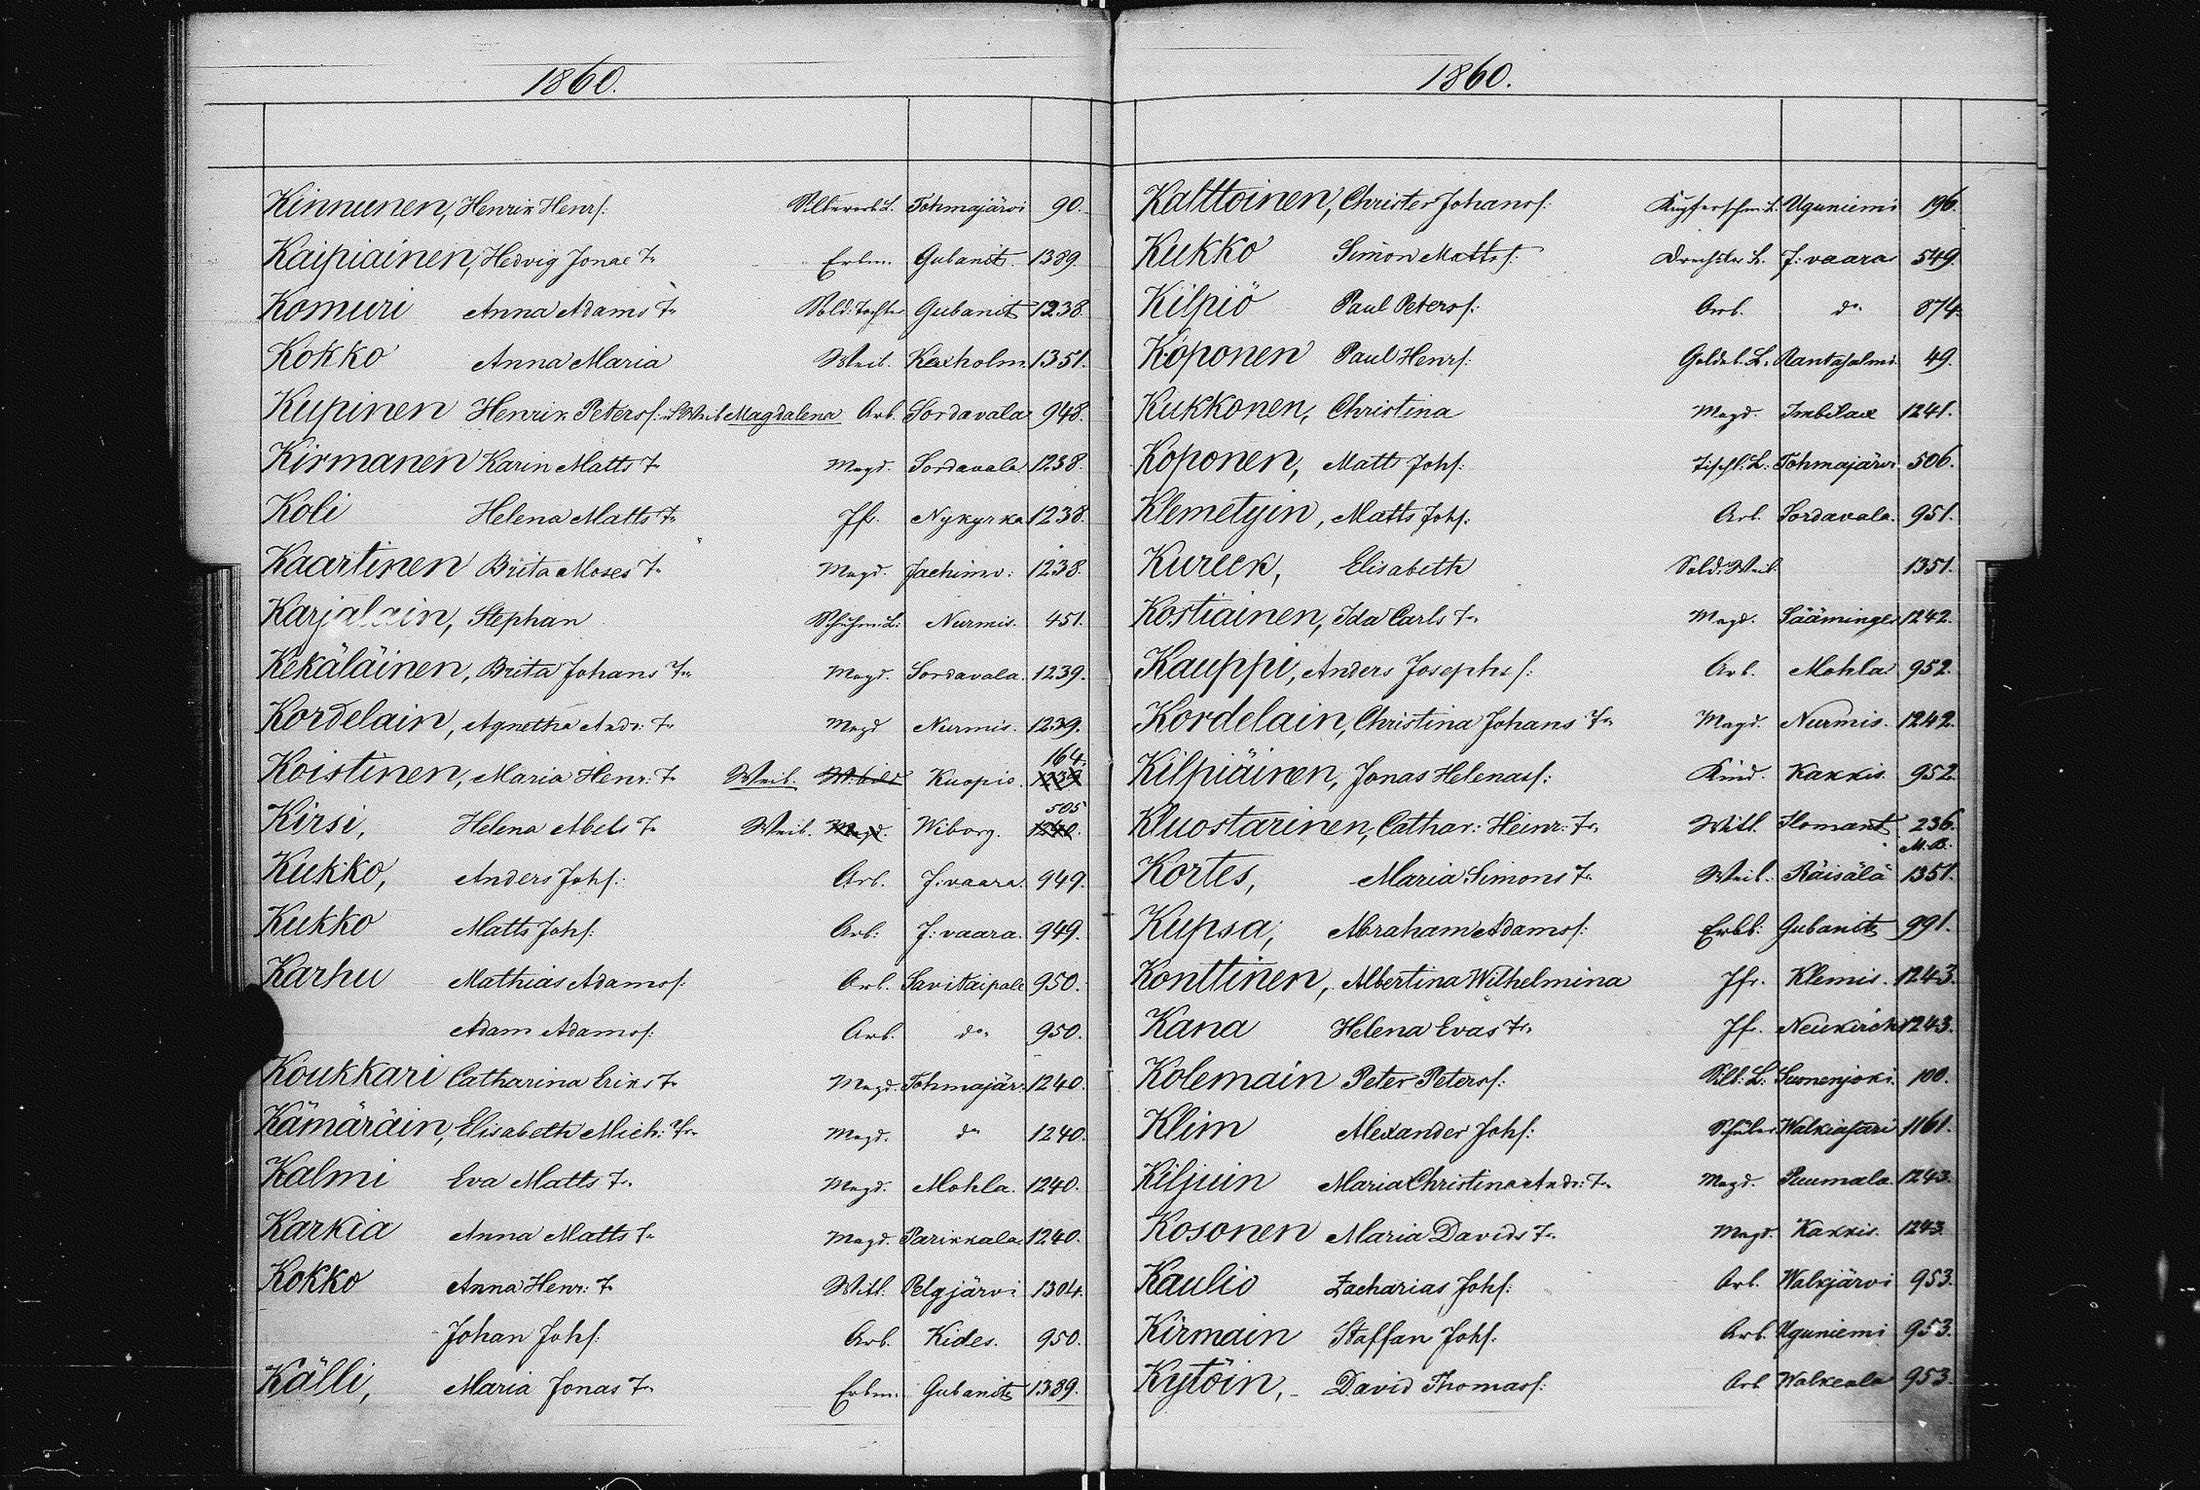 1860.
Kinnunen, Henrik Henrs: Silberarb. L. Tohmajärvi 90.
Kaipiainen, Hedvig Jonae Tr Erbm. Gubanit. 1389.
Komuri Anna Adams Tr Sold: Tochter Gubanits 1238.
Kokko Anna Maria Weib. Kexholm. 1351.
Kupinen Henrik Peters: u Weib Magdalena Arb. Sordavala 948.
Kirmanen Karin Matts Tr Magd. Sordavala 1238.
Koli Helena Matts Tr Jfr. Nykyrka 1238.
Kaartinen Brita Moses Tr Magd. Jachimv: 1238.
Karjalain, Stephan Schuhm. L: Nurmis. 451.
Kekäläinen, Brita Johans Tr Magd. Sordavala. 1239.
Kordelain, Agnetha Andr: Tr Magd Nurmis. 1239.
Koistinen, Maria Henr: Tr Weib. Kuopio. 164.
Kirsi, Helena Abels Tr Weib. Magd. Wiborg. 505 1240.
Kukko, Anders Johs: Arb. J:vaara. 949.
Kukko Matts Johs: Arb: J:vaara. 949.
Karhu Mathias Adams: Arb. Savitaipale 950.
Adam Adams: Arb. do 950.
Koukkari Catharina Eriks Tr Magd. Tohmajär: 1240.
Kämäräin, Elisabeth Mich: Tr Magd. do 1240.
Kalmi Eva Matts Tr. Magd. Mohla. 1240.
Karkia Anna Matts Tr Magd. Parikkala. 1240.
Kokko Anna Henr: Tr Witt. Pelgjärvi 1304.
Johan Johs: Arb. Kides. 950.
Källi, Maria Jonas Tr Erbm. Gubanits 1389.
1860.
Kalttoinen, Christer Johans: Kupferschm: L. Uguniemi 196.
Kukko Simon Matts: Drechsler L. J:vaara 549.
Kilpiö Paul Peters: Arb. do 874.
Koponen Paul Henrs: Goldsb. L. Rantasalmi. 49.
Kukkonen, Christina Magd. Imbilax 1241.
Koponen, Matts Johs: Tischl: L: Tohmajärvi 506.
Klemetyin, Matts Johs: Arb. Sordavala. 951.
Kureck, Elisabeth Sold: Weib. 1351.
Kostiainen, Ida Carls Tr. Magd. Sääminges 1242.
Kauppi, Anders Josephs: Arb. Mohla 952.
Kordelain, Christina Johans Tr Magd. Nurmis. 1242.
Kilpiäinen, Jonas Helenas: Kind. Kakkis. 952.
Kluostarinen, Cathar: Heinr: Tr. Witt. Ilomants 236. M.B.
Kortes, Maria Simons Tr Weib. Räisälä 1351.
Kupsa, Abraham Adams: Erbb: Gubanits 991.
Konttinen, Albertina Wilhelmina Jfr. Klemis. 1243.
Kana Helena Evas Tr. Jfr. Neukirch 1243.
Kolemain Peter Peters: Silb: L: Suonenjoki. 100.
Klim Alexander Johs: Schüler. Walkiasari 1161.
Kiljuin Maria Christina Andr: Tr Magd. Puumala. 1243.
Kosonen Maria Davids Tr Magd. Kakkis. 1243.
Kaulio Zacharias Johs: Arb. Walkjärvi 953.
Kirmain Staffan Johs: Arb. Uguniemi 953.
Kytöin, David Thomas: Arb Walkeala 953.